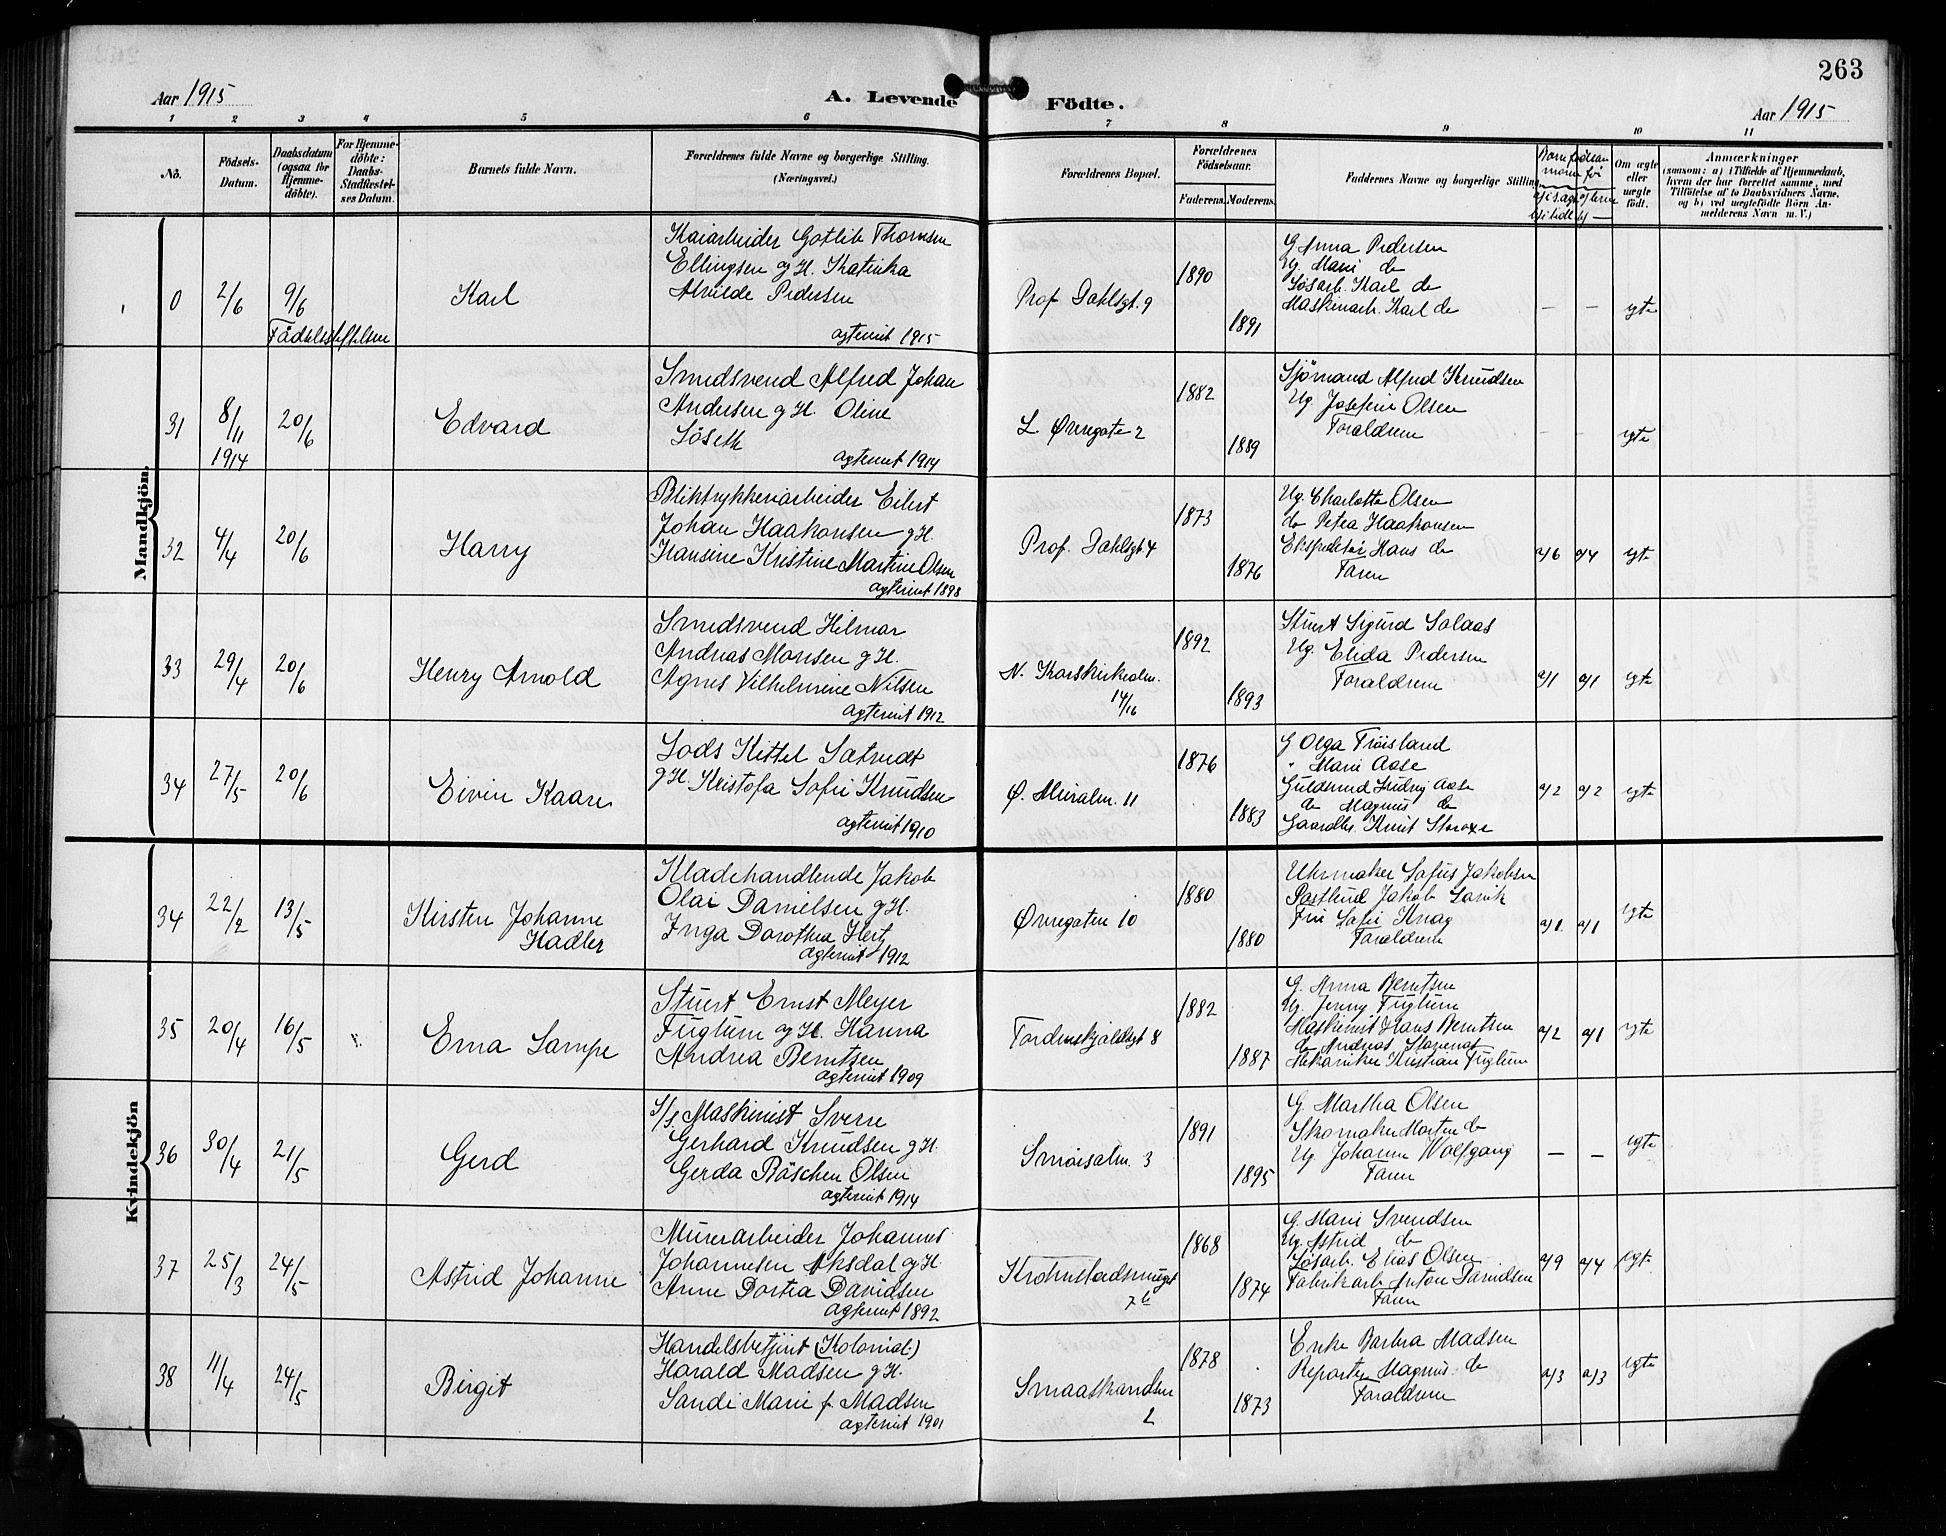 263
Aar 1915
A. Levende Födte.
Aar 1915
1 2 3 4 5 6 7 8 9 10 11
No.
Födsels-Datum.
Daabsdatum (ogsaa for Hjemme-döbte).
For Hjemme-döbte: Daabs-Stadfæstel-ses Datum.
Barnets fulde Navn.
Forældrenes fulde Navne og borgerlige Stilling.
(Næringsvei.)
Forældrenes Bopæl.
Forældrenes Födselsaar.
Faderens. Moderens.
Faddernes Navne og borgerlige Stilling
Om ægte eller uægte födt.
Anmærkninger
(saasom: a) i Tilfælde af Hjemmedaab, hvem der har forrettet samme, med Tilföielse af to Daabsvidners Navne, og b) ved uægtefödte Börn An-melderens Navn m. V.)
Mandkjön.
0 2/6 9/6
Fødselsstiftelsen
Karl
Kaiarbeider Gotlib Thomsen
Ellingsen og H. Katinka
Alvilde Pedersen
ægteviet 1915
Prof. Dahlsgt. 9
1890
1891
G Anna Pedersen
Ug. Marie do
Løsarb. Karl do
Maskinarb. Karl do
— — egte
31 8/11 1914 20/6
Edvard
Smedsvend Alfred Johan
Andersen g H. Oline
Løseth
ægteviet 1914
L. Øvregate 2
1882
1889
Sjømand Alfred Knudsen
Ug. Josefine Olsen
Forældrene
- - egte
32 4/4 20/6
Harry
Bliktrykkeriarbeider Eilert
Johan Haakonsen g H.
Hansine Kristine Martine Olsen
ægteviet 1898
Prof. Dahlsgt 4
1873
1876
Ug. Charlotte Olsen
do Petra Haakonsen
Ekspeditør Hans do
Faren
a/6 a/4 egte
33 29/4 20/6
Henry Arnold
Smedsvend Hilmar
Andreas Monsen g H.
Agnes Vilhelmine Nilsen
ægteviet 1912
N. Korskirkealm.
14/16
1892
1893
Stuert Sigurd Solaas
Ug. Elida Pedersen
Forældrene
a/1 a/1 egte
34 27/5 20/6
Eivin Kaare
Lods Kittel Satrudt
g H. Kristofa Sofie Knudsen
ægteviet 1910
Ø. Muralm. 11
1876
1883
G Olga Trøisland
" Marie Aase
Guldsmed Fredrig Aase
do Magnus do
Gaardbr. Knut Storoxe
a/2 a/2 egte
Kvindekjön
34 22/2 13/5
Kirsten Johanne
Hadler
Klædehandlende Jakob
Olai Danielsen g H.
Inga Dorothea Hert
ægteviet 1912
Øvregaten 10
1880
1880
Uhrmaker Sofus Jakobsen
Postbud Jakob Lorvik
Fru Sofie Knag
Forældrene
a/1 a/1 egte
35 20/4 16/5
Erna Lampe
Stuert Ernst Meyer
Fuglum og H. Hanna
Andrea Berntsen
ægteviet 1909
Tordenskjoldsgt 8
1882
1887
G. Anna Berntsen
Ug Jenny Fuglum
Maskinist Hans Berntsen
do Andreas Storenes
Mekaniker Kristian Fuglum
a/2 a/1 egte
36 30/4 21/5
Gerd
S/s. Maskinist Sverre
Gerhard Knudsen g H.
Gerda Böschen Olsen
ægteviet 1914
Smørsalm. 3
1891
1895
G. Martha Olsen
Skomaker Morten do
Ug Johanne Wolfgang
Faren
— — egte
37 25/3 24/5
Astrid Johanne
Murerarbeider Johannes
Johannesen Aksdal og H.
Anne Dortea Davidsen
ægteviet 1892
Krohnstadsmuget
7b
1868
1874
G. Marie Svendsen
Ug. Astrid do
Løsarb. Elias Olsen
Fabrikarb. Anton Davidsen
Faren
a/9 a/4 egt.
38 11/4 24/5
Birgit
Handelsbetjent (Kolonial.)
Harald Madsen g H.
Sandi Marie f. Madsen
ægteviet 1901
Smaastranden
2
1878
1873
Enke Barbra Madsen
Reporter Magnus do
Forældrene
a/3 a/3 egte